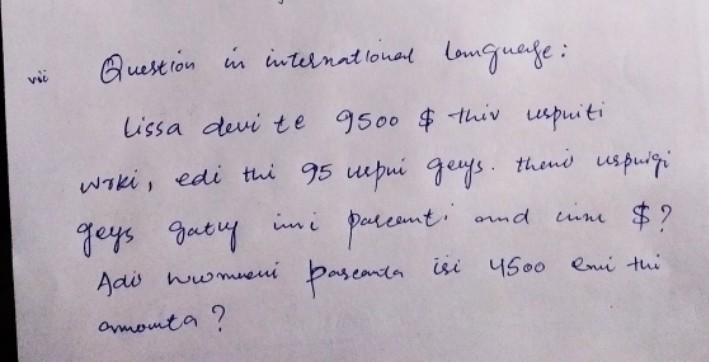 vii Question in international Language:
Lissa devi te 9500 $ thiv uspuiti
wrki, edi thi 95 uspui geys. theni uspuigi
geys gatuy imi parcenti and cine $?
Adi parcenta isi 4500 emi thi
amounta?